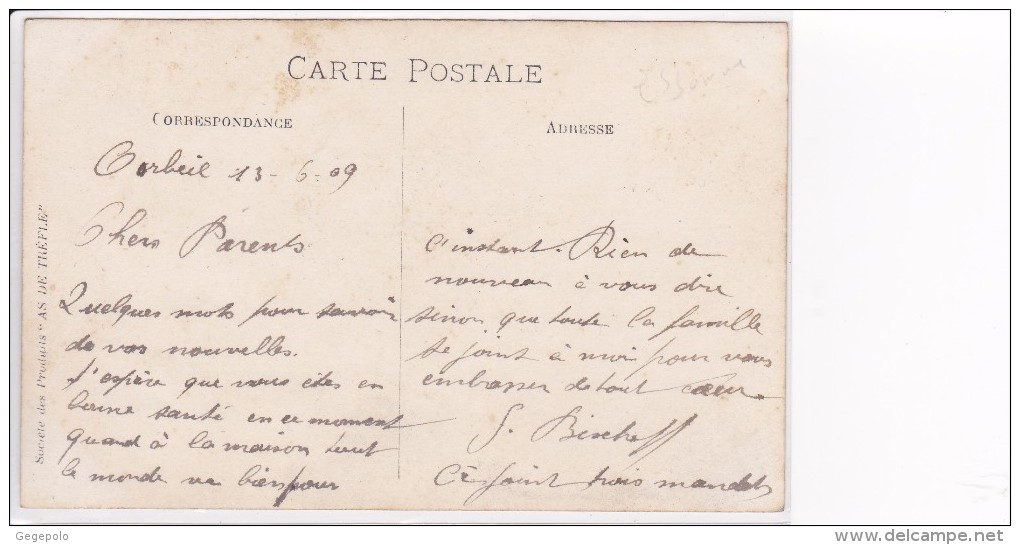 CARTE POSTALE
Essonne
CORRESPONDANCE
ADRESSE
Société des Produits "AS DE TRÈFLE"
Corbeil 13-6-09
Chers Parents
Quelques mots pour savoir
de vos nouvelles.
J'espère que vous êtes en
bonne santé en ce moment
quand à la maison tout
le monde va bien pour
l'instant. Rien de
nouveau à vous dire
sinon que toute la famille
se joint à moi pour vous
embrasser de tout cœur
Bischoff
Ci-joint trois mandats
Gegepolo
www.delcampe.net